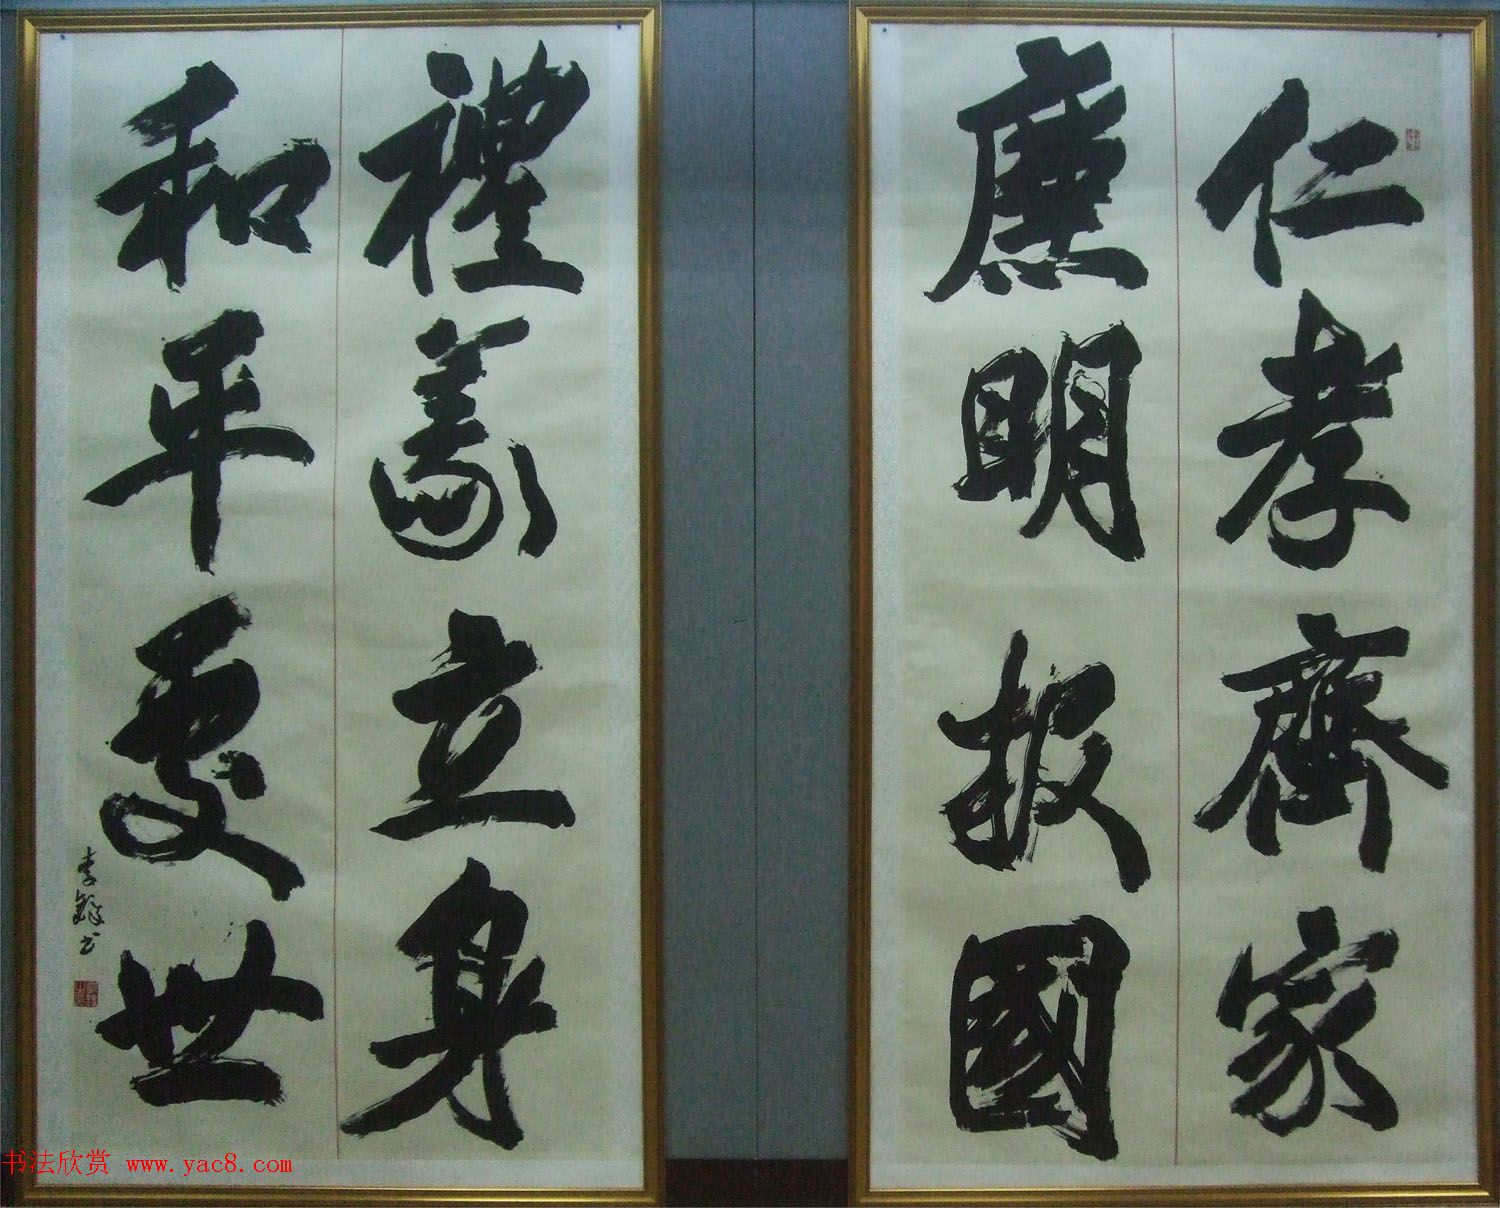 仁孝齊家
廉明报國
禮義立身
和平處世
书法欣赏 www.yac8.com